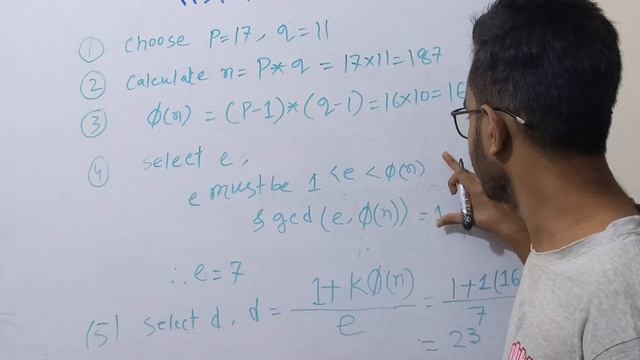 ① Choose P=17, q=11
② Calculate n= P*q = 17x11=187
③ φ(n) = (P-1)*(q-1)=16x10=16
④ select e,
e must be 1 <e< φ(n)
& gcd(e, φ(n)) = 1
∴ e=7
(5) select d, d = 1+kφ(n) / e = 1+1(16 / 7
= 23